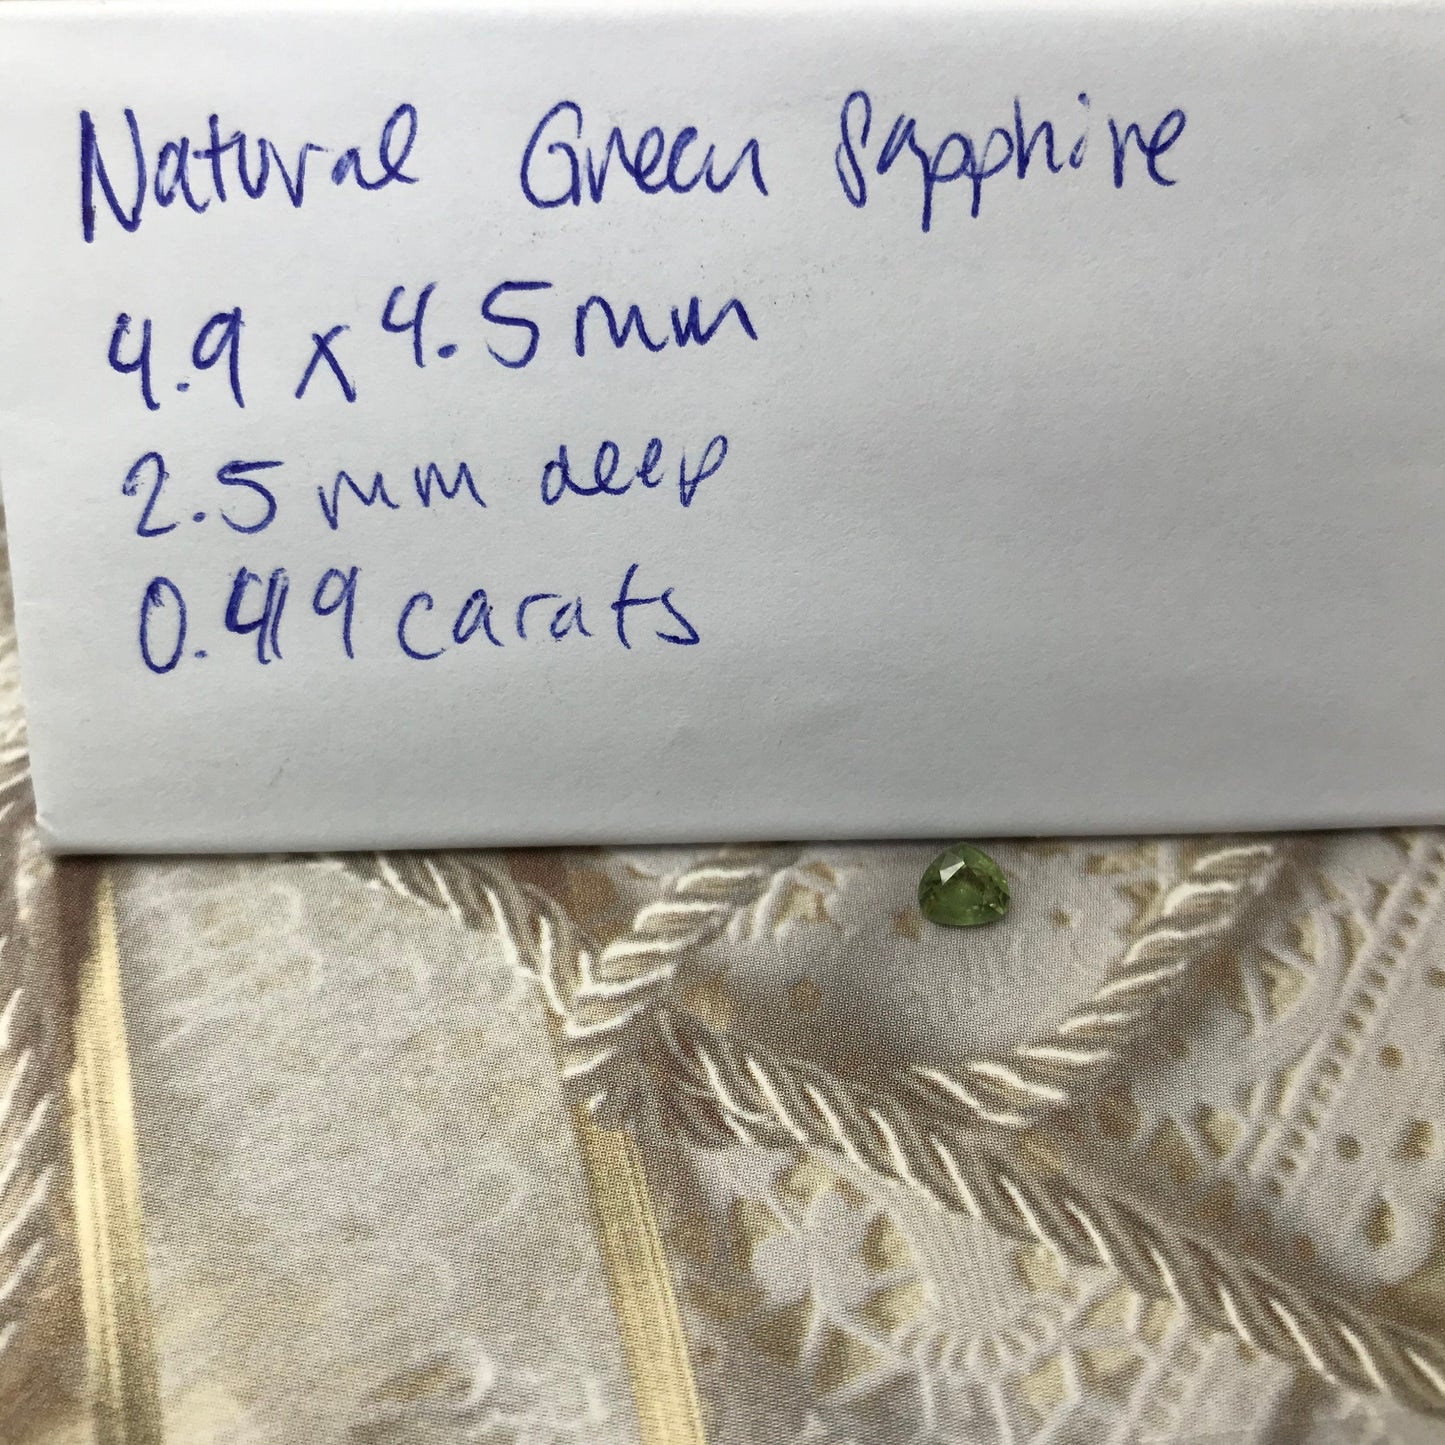 Natural Green Sapphire
4.9 x 4.5 mm
2.5 mm deep
0.419 carats